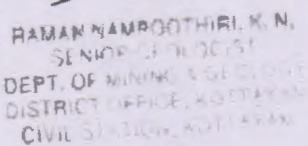 RAMAN NAMBOOTHIRI. K. N,
SENIOR GEOLOGIST
DEPT. OF MINING & GEOLOGY
DISTRICT OFFICE, KOTTAYAM
CIVIL STATION, KOTTAYAM